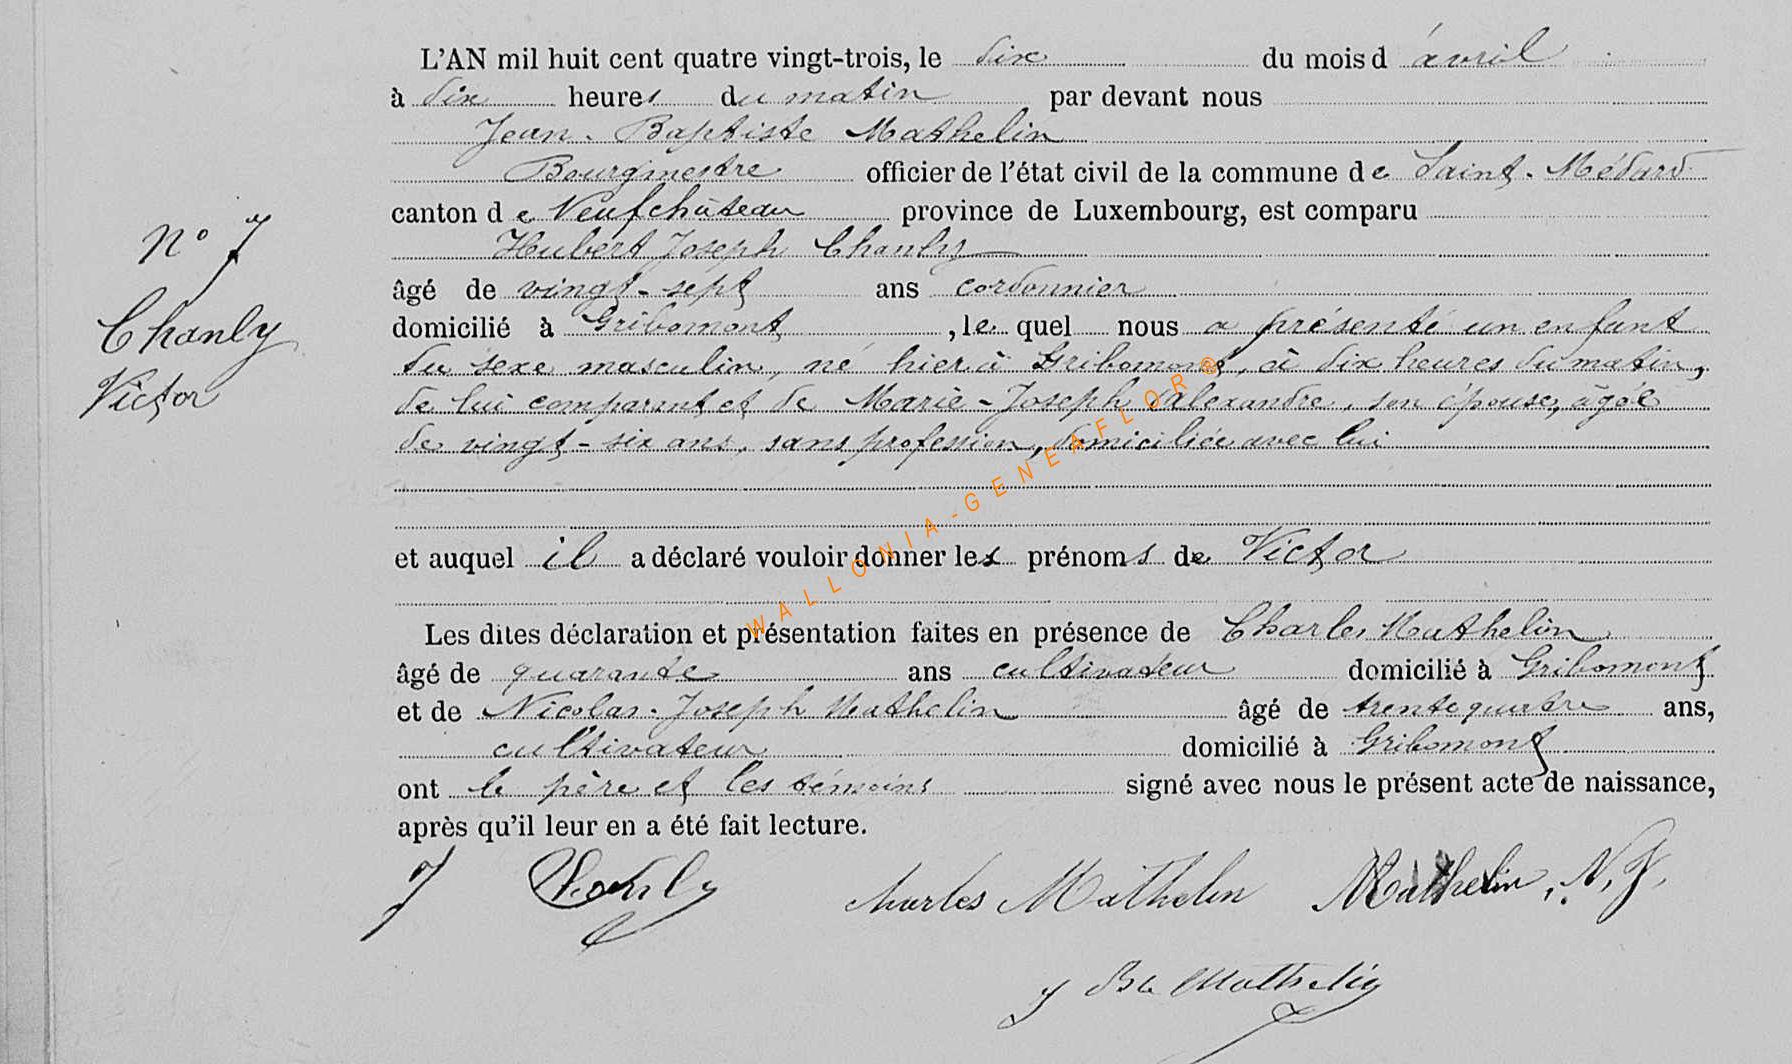 L'AN mil huit cent quatre vingt-trois, le dix du mois d'avril
à dix heures du matin par devant nous
Jean-Baptiste Mathelin
Bourgmestre officier de l'état civil de la commune de Saint-Médard
canton de Neufchâteau province de Luxembourg, est comparu
Hubert Joseph Chanly
âgé de vingt-sept ans cordonnier
domicilié à Gribomont, lequel nous a présenté un enfant
du sexe masculin, né hier à Gribomont, à dix heures du matin,
de lui comparant et de Marie-Joseph Alexandre, son épouse, âgée
de vingt-six ans, sans profession, domiciliée avec lui
et auquel il a déclaré vouloir donner les prénoms de Victor
Les dites déclaration et présentation faites en présence de Charles Mathelin
âgé de quarante ans cultivateur domicilié à Gribomont
et de Nicolas-Joseph Mathelin âgé de trente quatre ans,
cultivateur domicilié à Gribomont
ont le père et les témoins signé avec nous le présent acte de naissance,
après qu'il leur en a été fait lecture.
J Chanly Charles Mathelin Mathelin, N. J.
J Bte Mathelin
N° 7
Chanly
Victor
WALLONIA-GENEAFLOR®